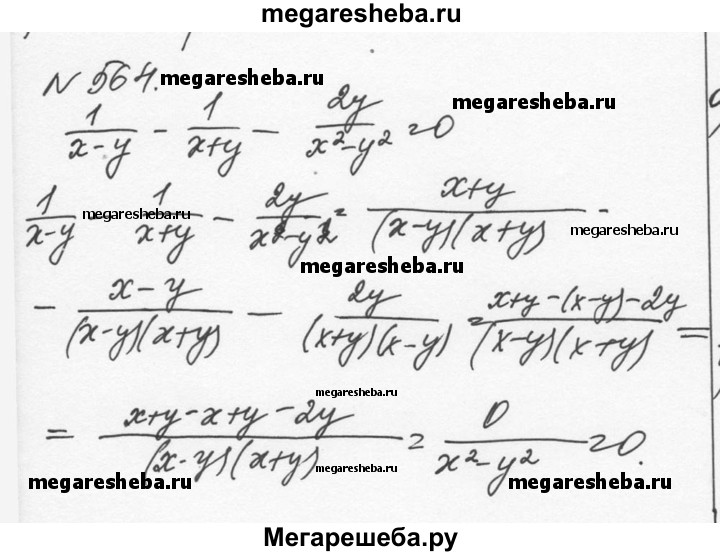 megaresheba.ru
N 564. megaresheba.ru
1/(x-y) - 1/(x+y) - 2y/(x²-y²) = 0 megaresheba.ru
1/(x-y) - 1/(x+y) - 2y/(x²-y²) = (x+y)/((x-y)(x+y)) -
megaresheba.ru megaresheba.ru
megaresheba.ru
- (x-y)/((x-y)(x+y)) - 2y/((x+y)(x-y)) = (x+y-(x-y)-2y)/((x-y)(x+y)) =
megaresheba.ru
= (x+y-x+y-2y)/((x-y)(x+y)) = 0/(x²-y²) = 0.
megaresheba.ru megaresheba.ru megaresheba.ru
Мегарешеба.ру